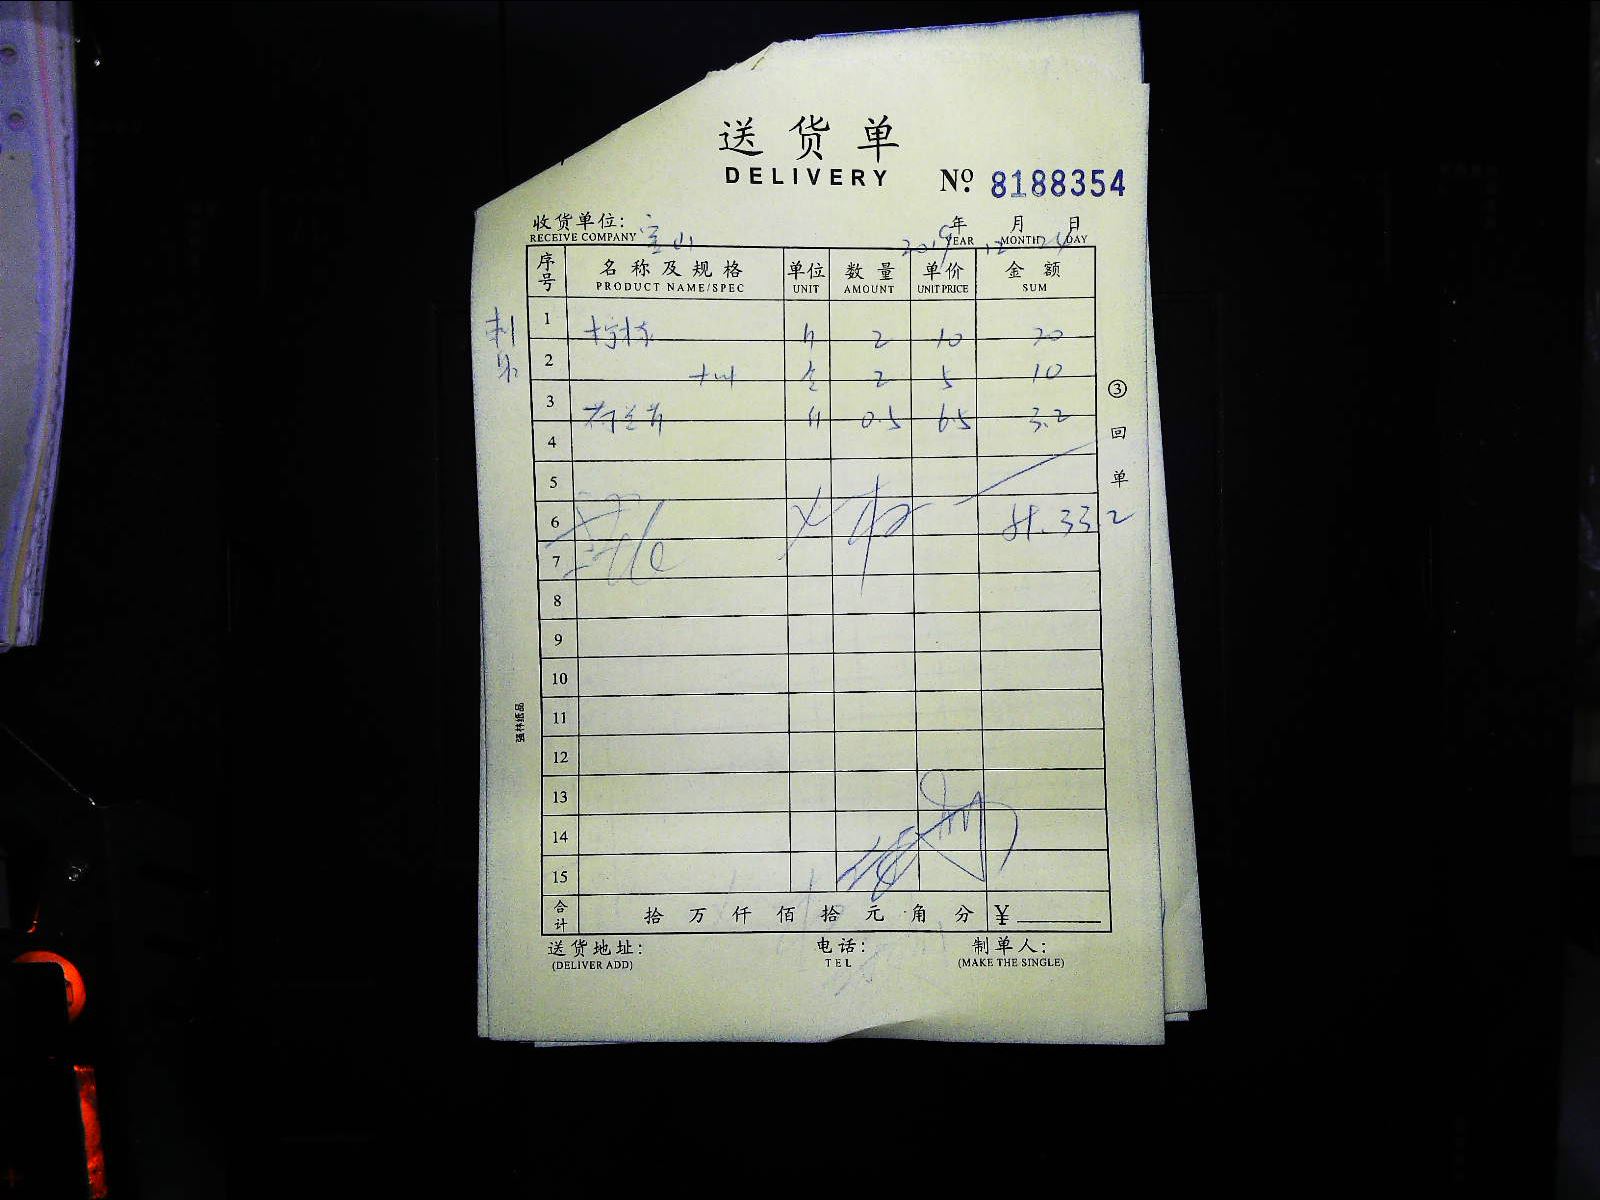 送货单
DELIVERY
№ 8188354
收货单位: 宝山 2019年 12月 日
RECEIVE COMPANY YEAR MONTH DAY
序号 名称及规格 单位 数量 单价 金额
PRODUCT NAME/SPEC UNIT AMOUNT UNIT PRICE SUM
1 柠檬 斤 2 10 20
2 2 5 10
3 荷兰芹 斤 0.5 6.5 3.2
4
5
6 33.2
7
8
9
10
11
12
13
14
15
合计 拾 万 仟 佰 拾 元 角 分 ¥
送货地址: 电话: 制单人:
(DELIVER ADD) TEL (MAKE THE SINGLE)
③回单
强林纸品